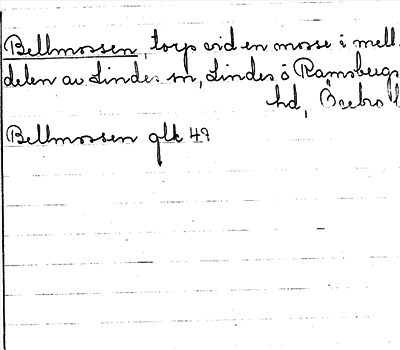 Bellmossen, torp vid en mosse i mell.
delen av Lindes sn, Lindes o Ramsbergs
hd, Örebro l
Bellmossen glk 49